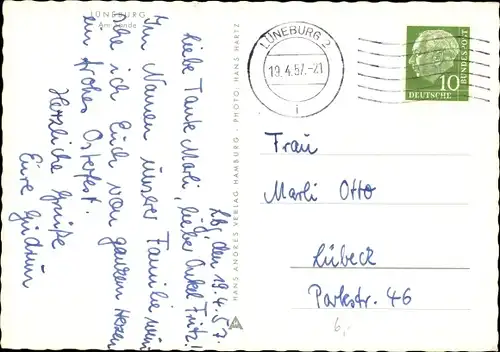 LÜNEBURG
Am Sande
Lbg, den 19.4.57.
Liebe Tante Marli, lieber Onkel Fritz!
Im Namen unserer Familie wün
sche ich Euch von ganzem Herzen
ein frohes Osterfest.
Herzliche Grüße
Eure Gudrun
HANS ANDRES VERLAG HAMBURG · PHOTO: HANS HARTZ
LÜNEBURG 2
19.4.57.-21
i
10
DEUTSCHE
BUNDESPOST
Frau
Marli Otto
Lübeck
Parkstr. 46
6,-